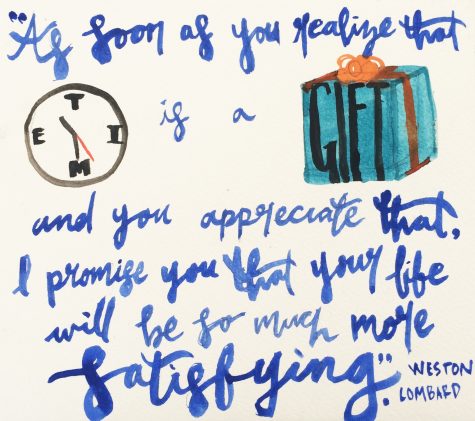 "As soon as you realize that
TIME is a GIFT
and you appreciate that,
I promise you that your life
will be so much more
satisfying."
WESTON
LOMBARD